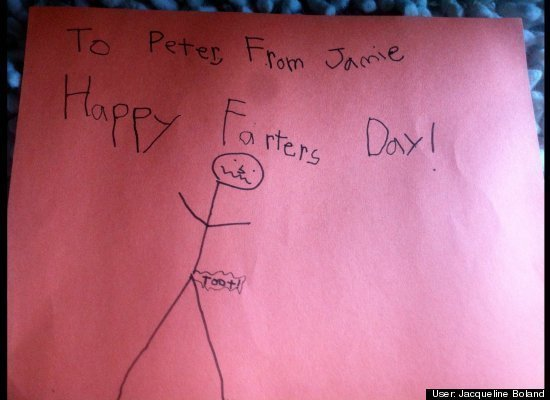 To Peter From Jamie
Happy Farters Day!
TOOT!
User: Jacqueline Boland